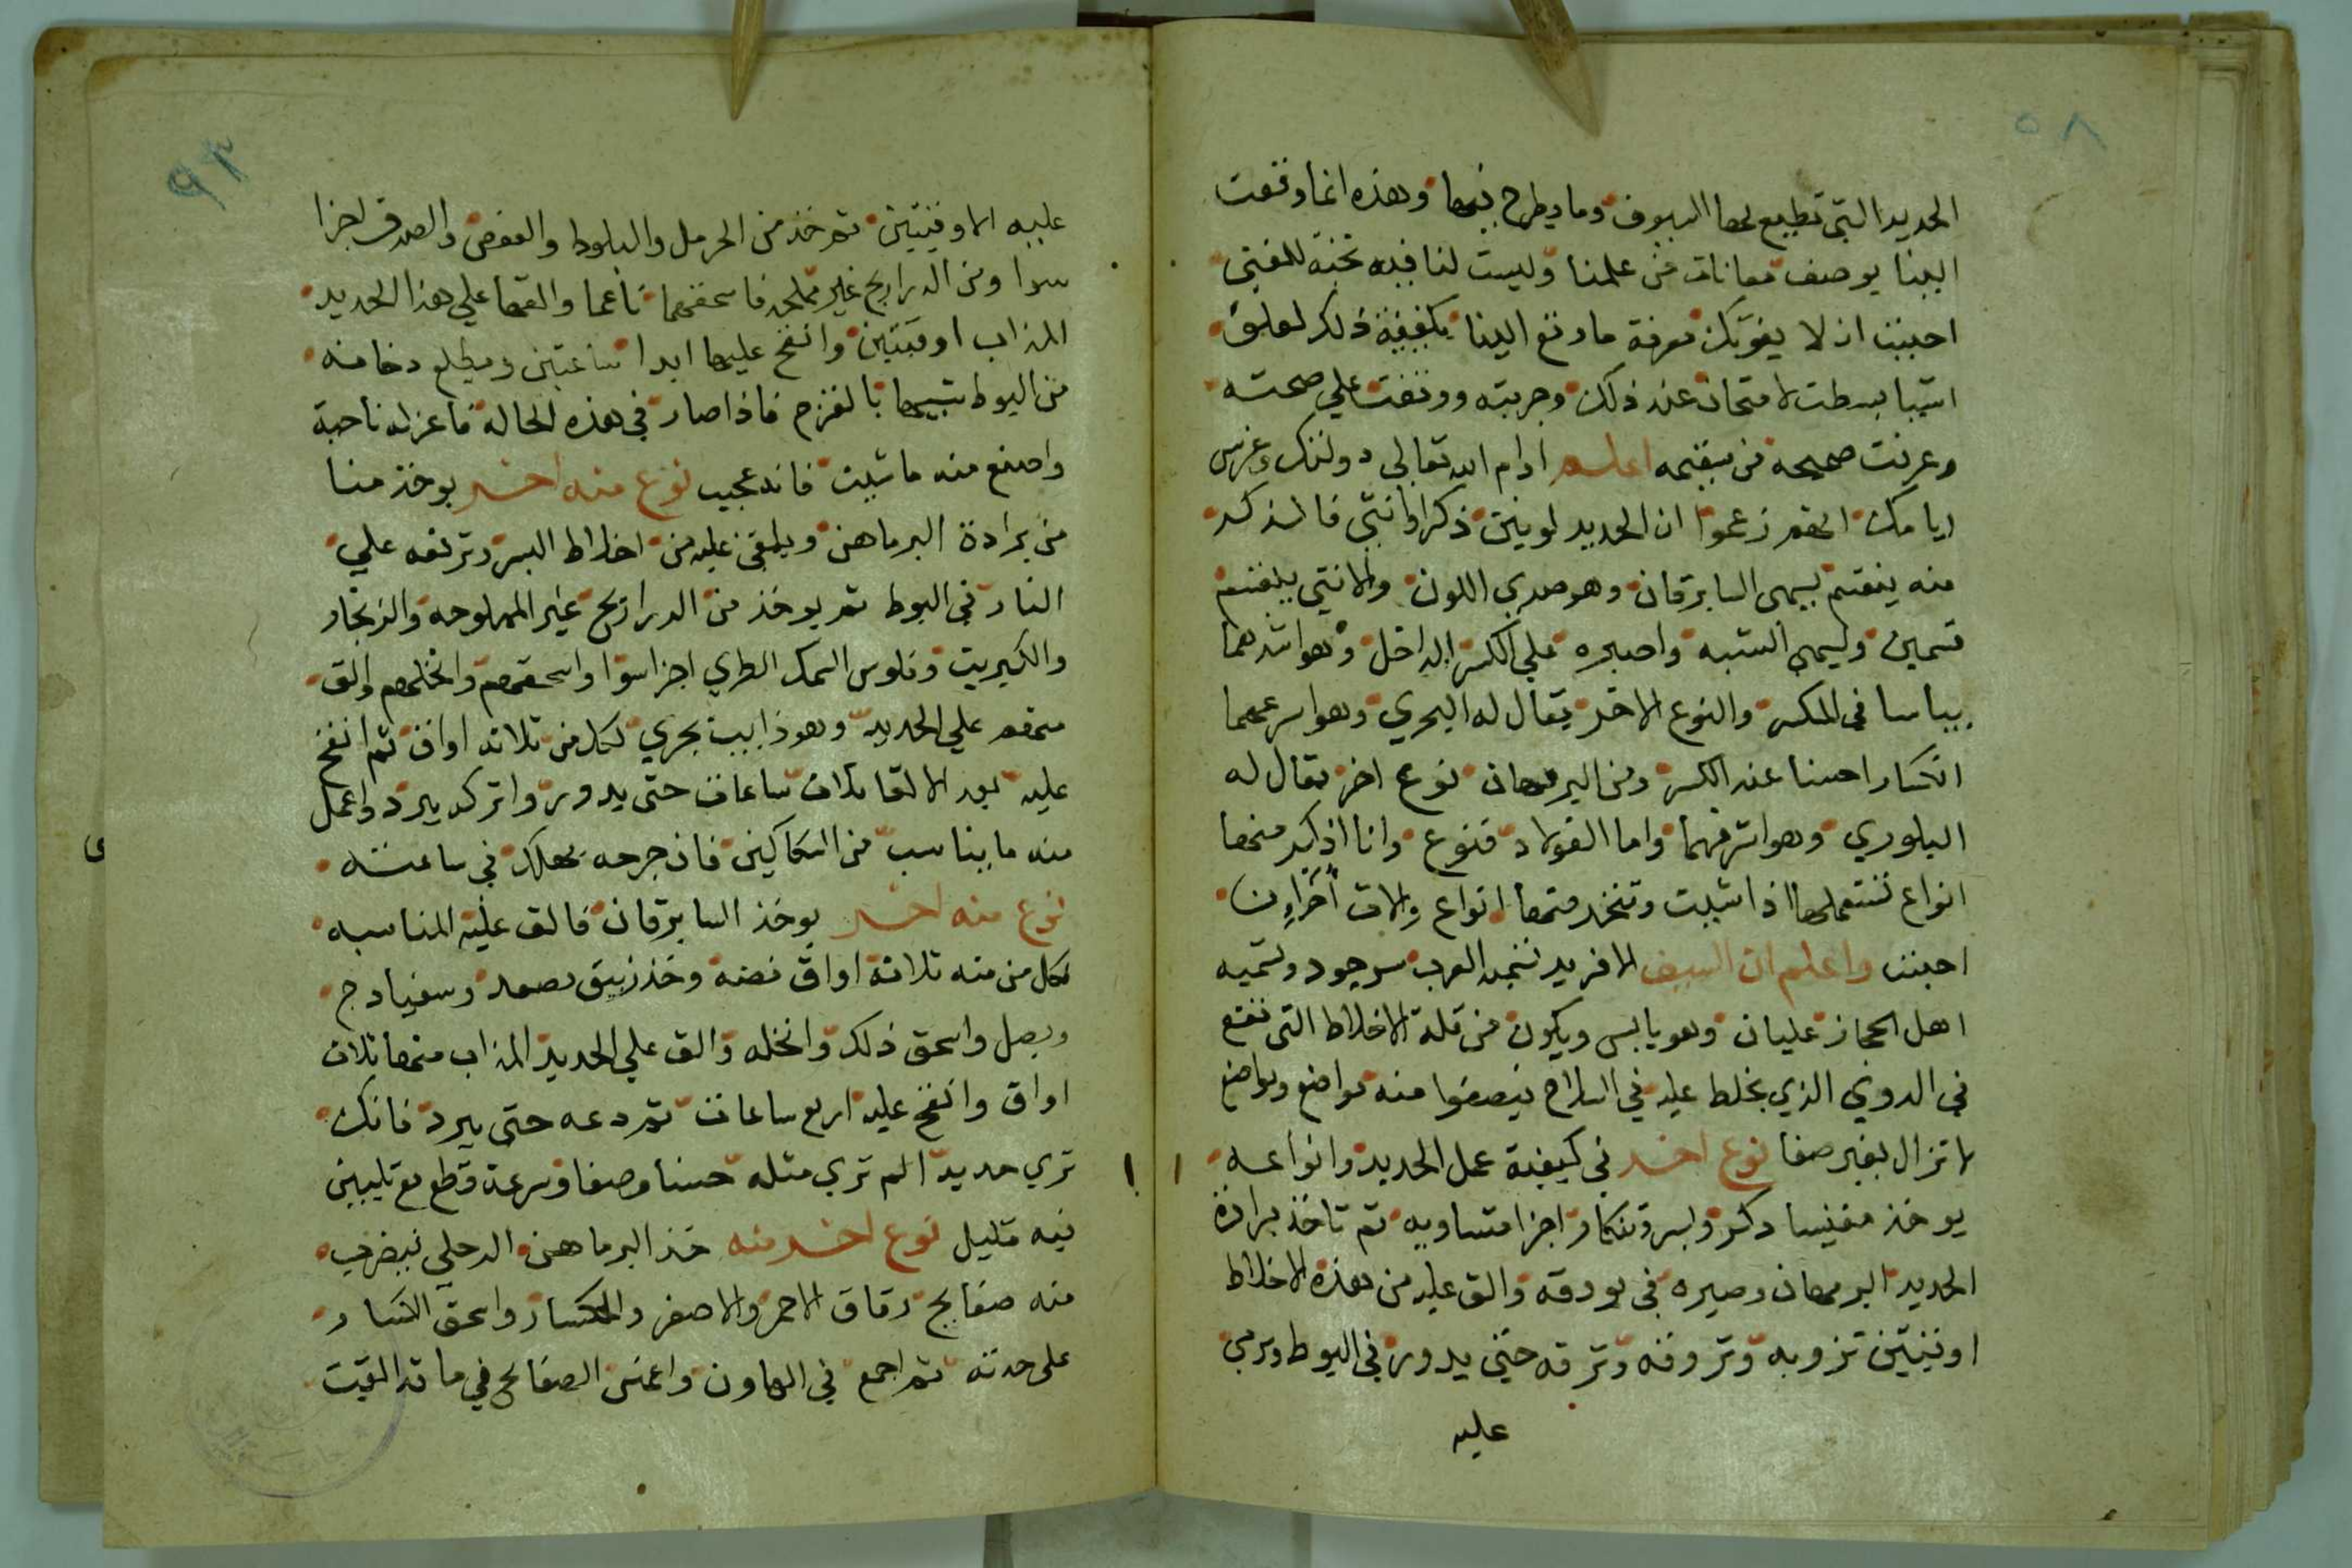 ٥٨
الحديد التي تطبع لها السيوف وما يطرح فيها وهذه انما وقعت
الينا بوصف معانات من علمنا وليست لنا فيه
احببت ان لا يفوتك معرفة ما وقع الينا بكيفية ذلك
لامتحان عند ذلك وجربته ووقفت علي صحته
وعرفت صحيحه من سقيمه اعلم ادام الله تعالي دولتك وغرس
ايامك انهم زعموا ان الحديد لونين ذكر وانثي فالذكر
منه ينقسم يسمي السابرقان وهو صدي اللون والانثي ينقسم
قسمين وليسمي الشبه واصبره علي الكسر الداخل وهو اشدهما
بياسا في المكسر والنوع الاخر يقال له البحري وهو اسرعهما
انكسارا حسنا عند الكسر ومن البرمهان نوع اخر يقال له
البلوري وهو اشرفهما واما الفولاد فنوع وانا اذكر منها
انواع تستعملها اذا شيت وتتخذ منها انواع والات اخر ان
احببت واعلم ان السيف الافريد تسميه العرب سرجود وتسميه
اهل الحجاز عليان وهو يابس ويكون من قلة الاخلاط التي تقع
في الدوي الذي يخلط عليه في السلاح فيصفوا منه مواضع ومواضع
لا تزال بغير صفا نوع اخر في كيفية عمل الحديد وانواعه
يوخذ مغنيسا دكر وبسر وتنكار اجزا متساويه ثم تاخذ برادة
الحديد البرمهان وصيره في بودقه والق عليه من هذه الاخلاط
اوقيتين تزوبه وتروقه وترقه حتي يدور في البوط ويرمي
عليه
٩٣
عليه الاوقيتين ثم خذ من الحرمل والبلوط والعفص والصدف اجزا
سوا ومن الدراريح غير مملحه فاسحقهما ناعما والقها علي هذا الحديد
المذاب اوقيتين وانفخ عليها ابدا ساعتين ويطلع دخانه
من البوط شبيها بالقزح فاذا صار في هذه الحاله فاعزله ناحية
واصنع منه ما شيت فانه عجيب نوع منه اخر يوخذ منا
من برادة البرماهن ويلقي عليه من اخلاط البسر وترفعه علي
النار في البوط ثم يوخذ من الدراريح غير المملوحه والزنجار
والكبريت وفلوس السمك الطري اجزا سوا واسحقهم وانخلهم والق
منهم علي الحديد وهو ذايب يجري لكل من ثلاثه اواق ثم انفخ
عليه بعد الالقا ثلاث ساعات حتي يدور واتركه يبرد واعمل
منه ما يناسب من السكاكين فان جرحه يهلك في ساعته
نوع منه اخر يوخذ السابرقان فالق عليه المناسبه
لكل من منه ثلاثة اواق فضه وخذ زيبق مصعد وسفيادج
وبصل واسحق ذلك وانخله والق علي الحديد المذاب منها ثلاث
اواق وانفخ عليه اربع ساعات ثم دعه حتي يبرد فانك
تري حديدا لم تري مثله حسنا وصفا وسرعة قطع مع تليين
فيه قليل نوع اخر منه خذ البرماهن الدحلي فيضرب
منه صفايح رقاق الاحمر والاصفر والمكسار واسحق الانكسار
علي حدته ثم اجمع في الهاون واغمس الصفايح في ما قد القيت